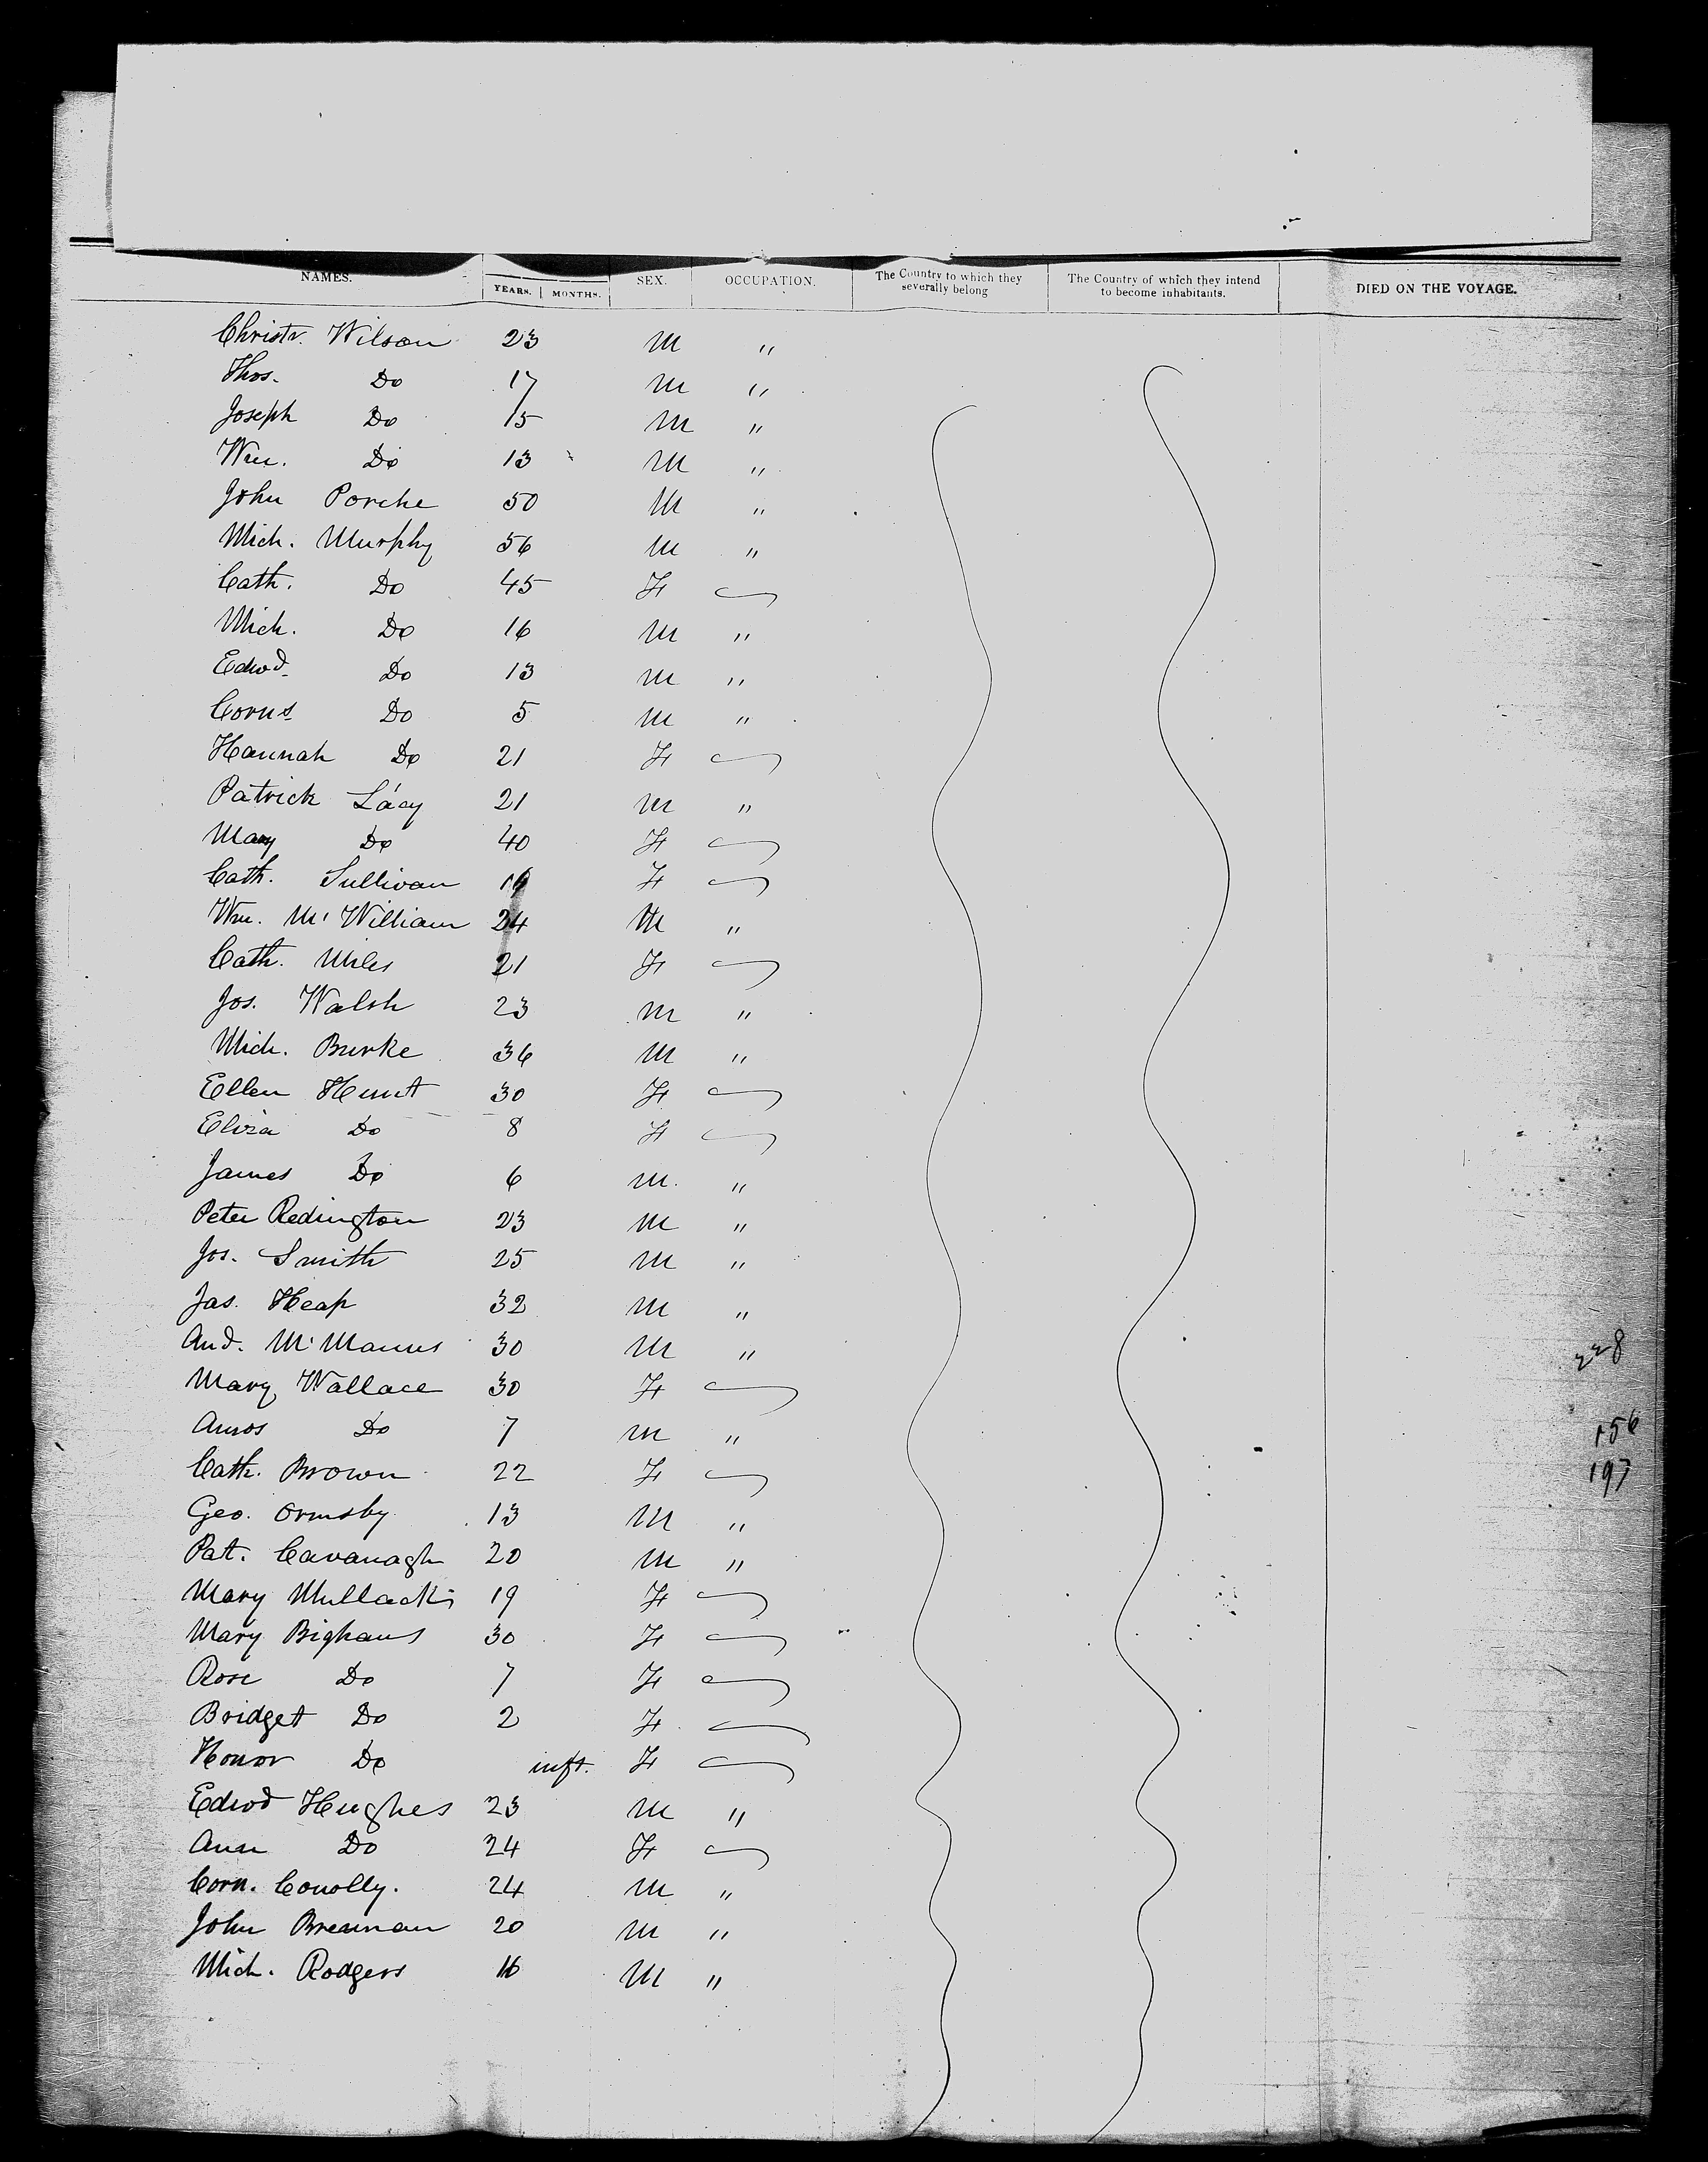 NAMES. YEARS. MONTHS. SEX. OCCUPATION. The Country to which they severally belong The Country of which they intend to become inhabitants. DIED ON THE VOYAGE.
Christr. Wilson 23 M "
Thos. Do 17 M "
Joseph Do 15 M "
Wm. Do 13 M "
John Porche 50 M "
Mich. Murphy 56 M "
Cath. Do 45 F
Mich. Do 16 M "
Edwd. Do 13 M "
Corns Do 5 M "
Hannah Do 21 F
Patrick Lacy 21 M "
Mary Do 40 F
Cath. Sullivan F
Wm. Mc William 24 M "
Cath. Miles 21 F
Jos. Walsh 23 M "
Mich. Burke 36 M "
Ellen Hunt 30 F
Eliza Do 8 F
James Do 6 M. "
Peter Redington 23 M "
Jos. Smith 25 M "
Jas. Heap 32 M "
And. McManus 30 M "
Mary Wallace 30 F
Amos Do 7 M "
Cath. Brown 22 F
Geo. Ormsby 13 M "
Pat. Cavanagh 20 M "
Mary 19 F
Mary Bighans 30 F
Rose Do 7 F
Bridget Do 2 F
Honor Do inft. F
Edwd Hughes 23 M "
Ann Do 24 F
Corn. Conolly. 24 M "
John Brennan 20 M "
Mich. Rodgers 16 M "
228
156
197